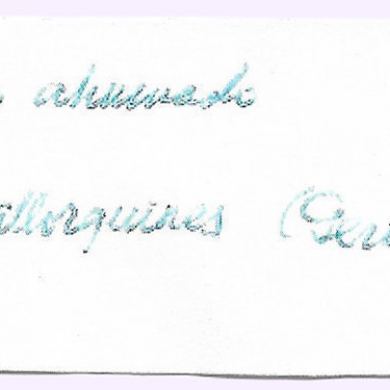 ahumado
allorquines (Ger